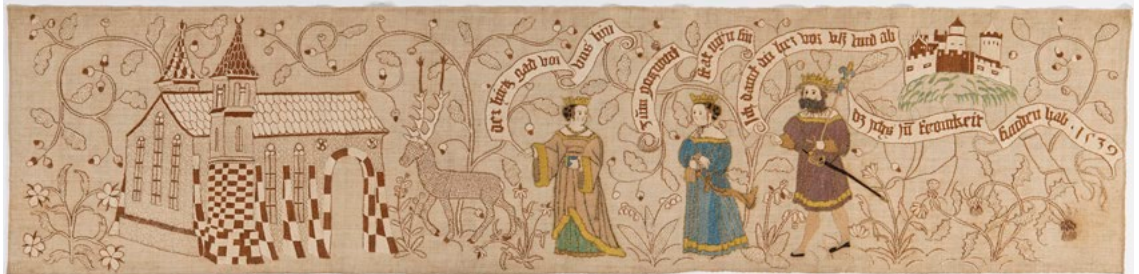 der hirtz gad vor vns hin
zům gotzhus stat sin
Ich danck dir herr vor vß vnd ab
dz ichs zů fromkeit hab . 1539